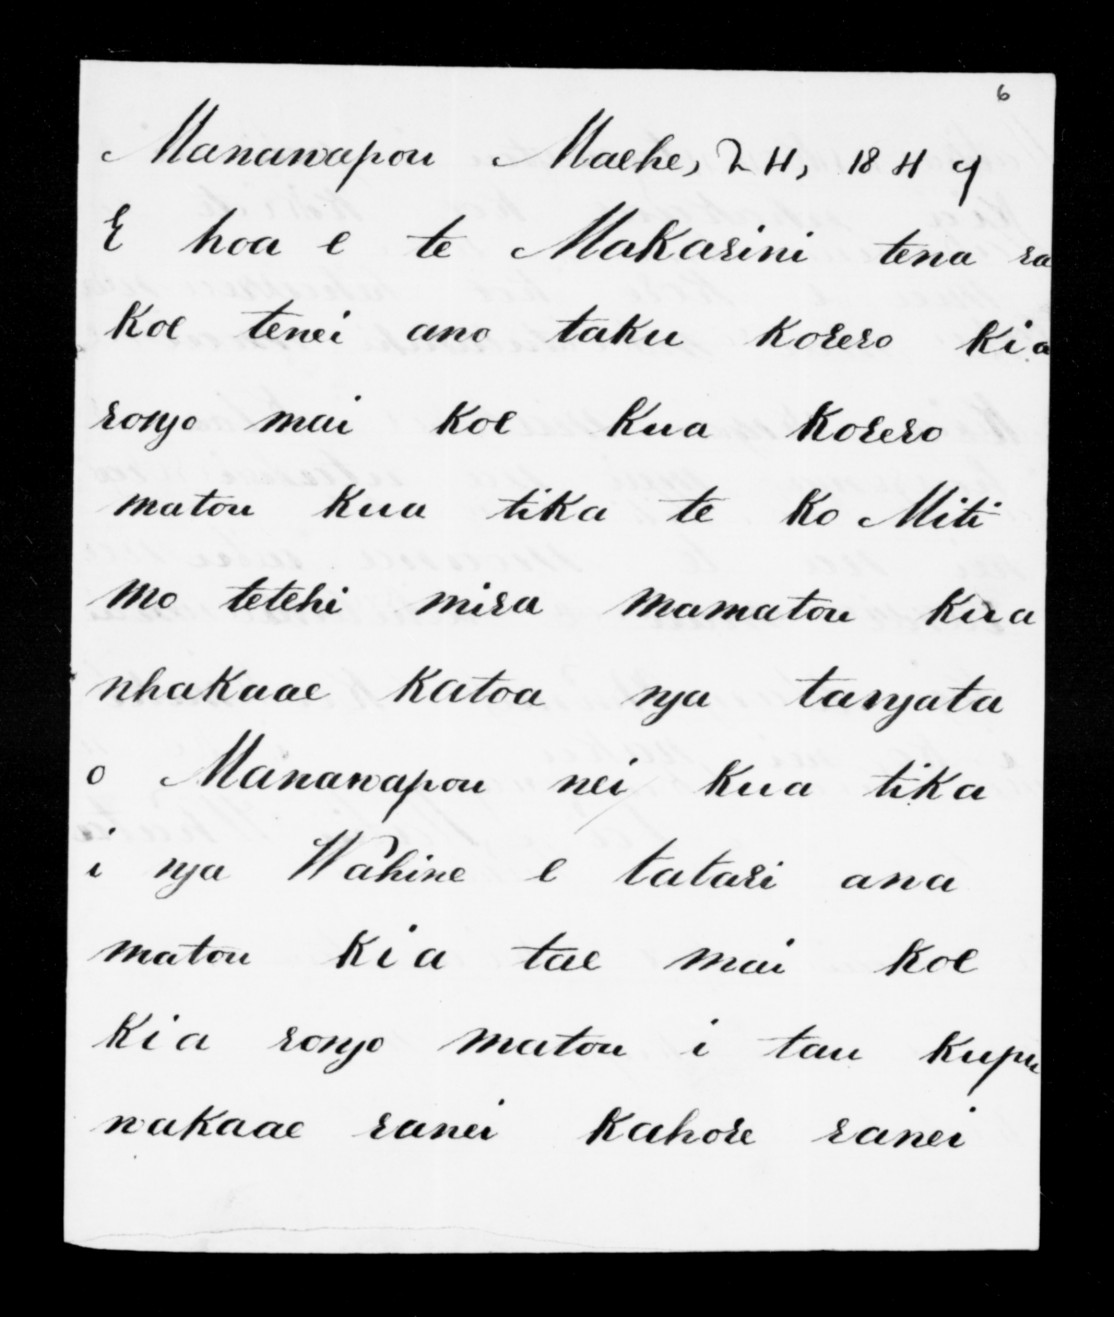 6
Manawapou Maehe, 24, 1849
E hoa e te Makarini tena ra
Koe tenei ano taku Korero Kia
rongo mai Koe Kua Korero
matou Kua tika te Ko Miti
Mo tetehi mira mamatou Kua
nhakaae Katoa nga tangata
o Manawapou nei Kua tika
i nga Wahine e tatari ana
matou Kia tae mai Koe
Kia rongo matou i tau Kupu
wakaae ranei Kahore ranei